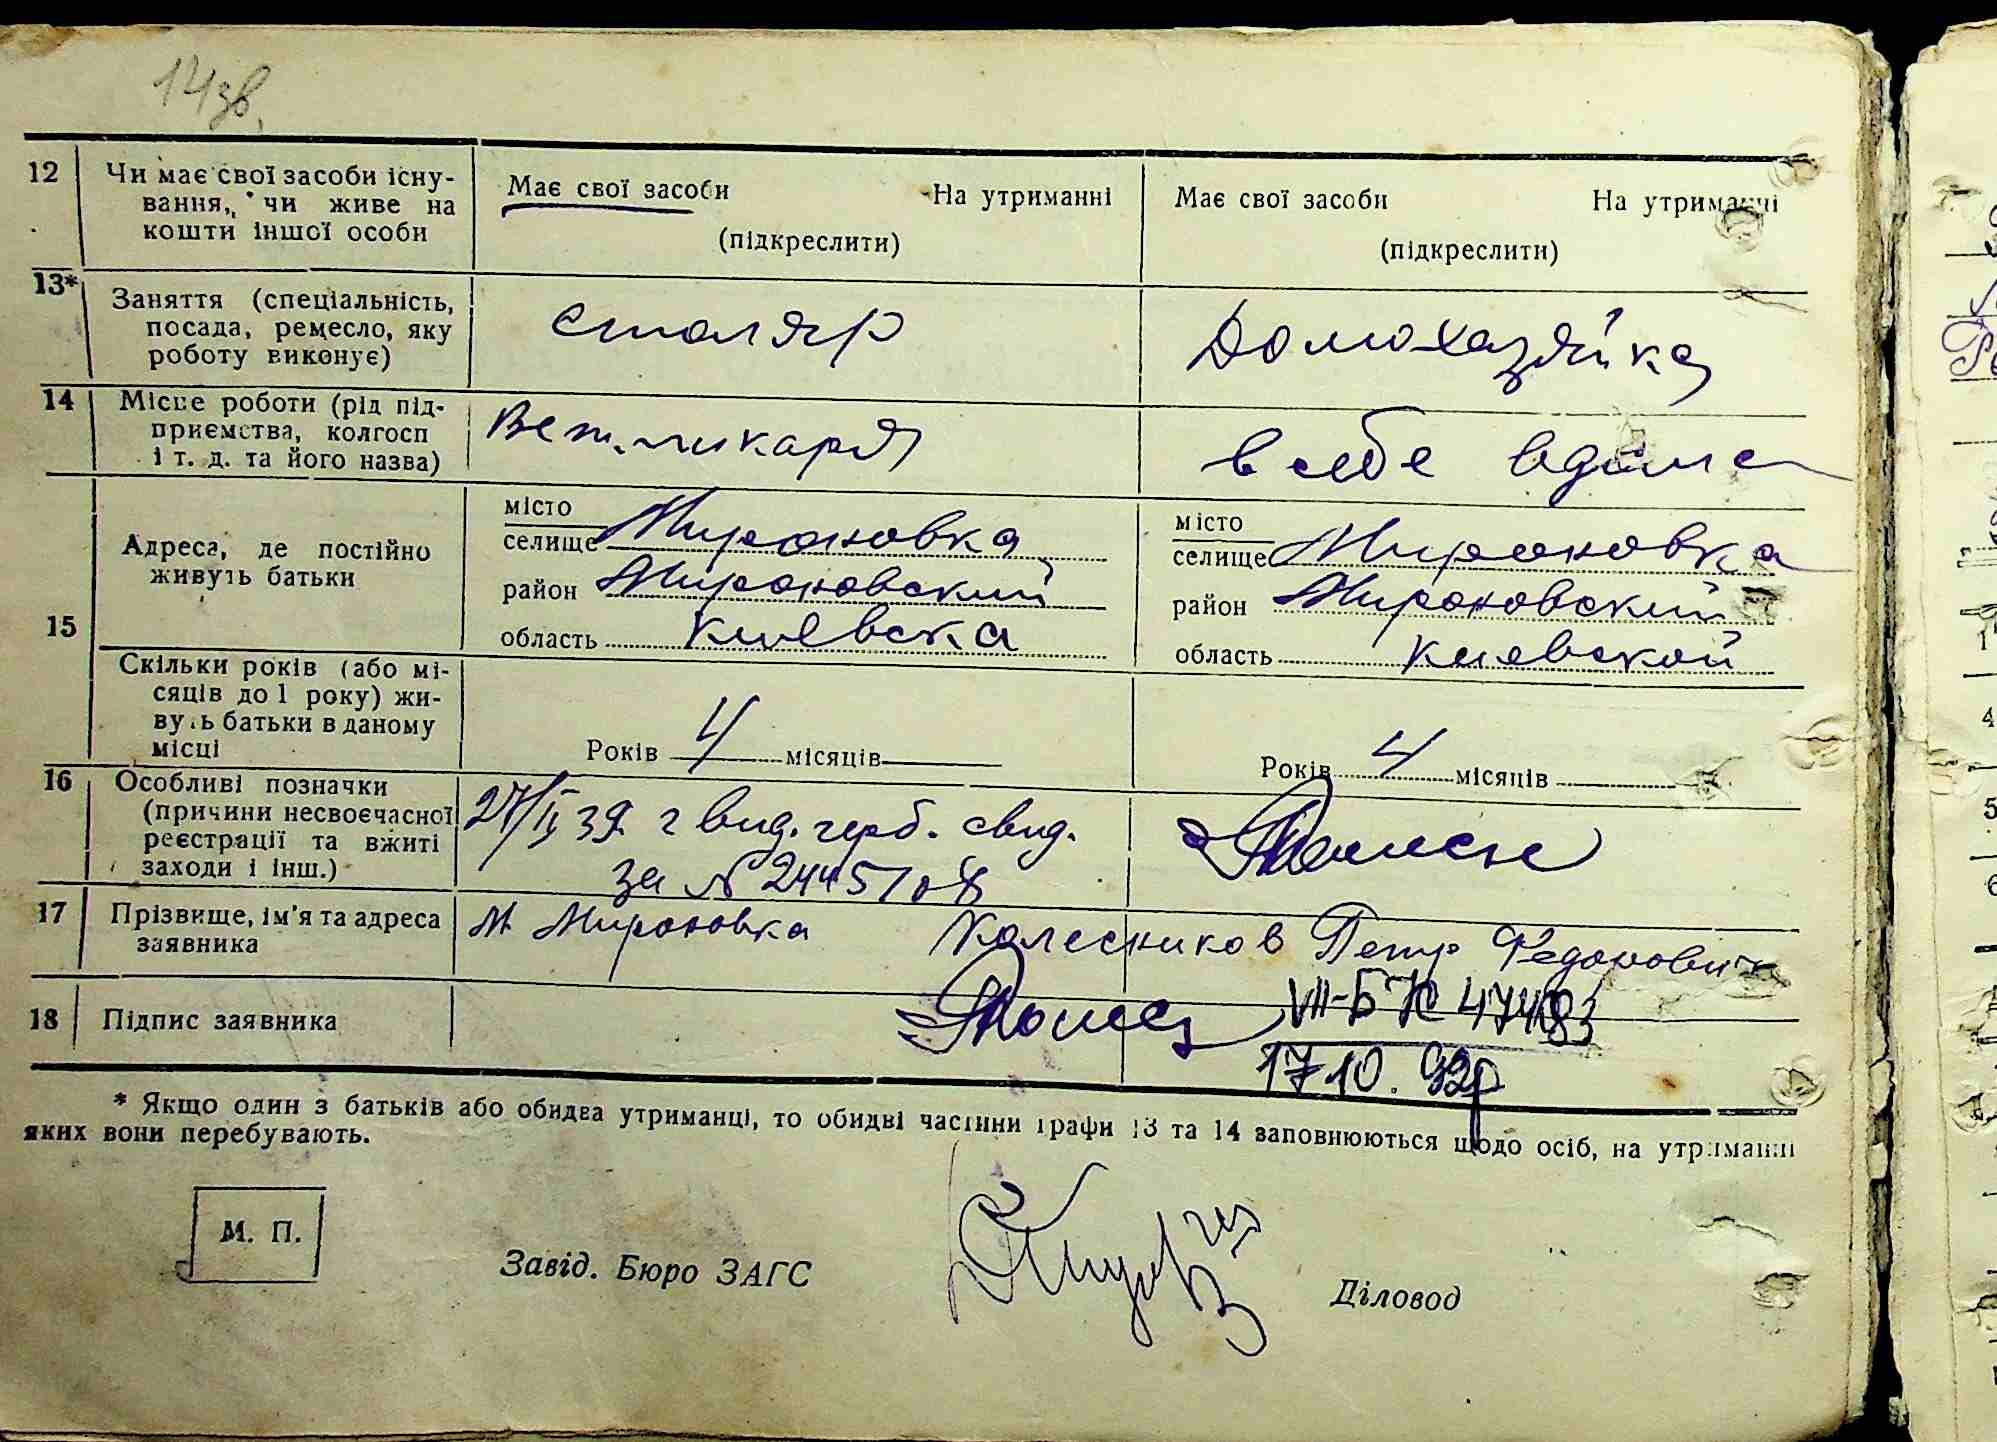 14 зв.
12 Чи має свої засоби існу-
вання, чи живе на
кошти іншої особи
Має свої засоби На утриманні
(підкреслити)
Має свої засоби На утриманні
(підкреслити)
13* Заняття (спеціальність,
посада, ремесло, яку
роботу виконує)
столяр
Домохазяйка
14 Місце роботи (рід під-
приємства, колгосп
і т. д. та його назва)
Вет.
в себе вдома
15 Адреса, де постійно
живуть батьки
місто
селище Мироновка
район Мироновский
область Киевска
місто
селище Мироновка
район Мироновский
область Киевской
Скільки років (або мі-
сяців до 1 року) жи-
вуть батьки в даному
місці
Років 4 місяців
Років 4 місяців
16 Особливі позначки
(причини несвоєчасної
реєстрації та вжиті
заходи і інш.)
27/ 39 г вид. герб. свид.
за №
17 Прізвище, ім'я та адреса
заявника
м. Мироновка Колесников Петр
18 Підпис заявника
VII-БК
17 10. 92р
* Якщо один з батьків або обидва утриманці, то обидві частини графи 13 та 14 заповнюються щодо осіб, на утриманні
яких вони перебувають.
М. П.
Завід. Бюро ЗАГС
Діловод